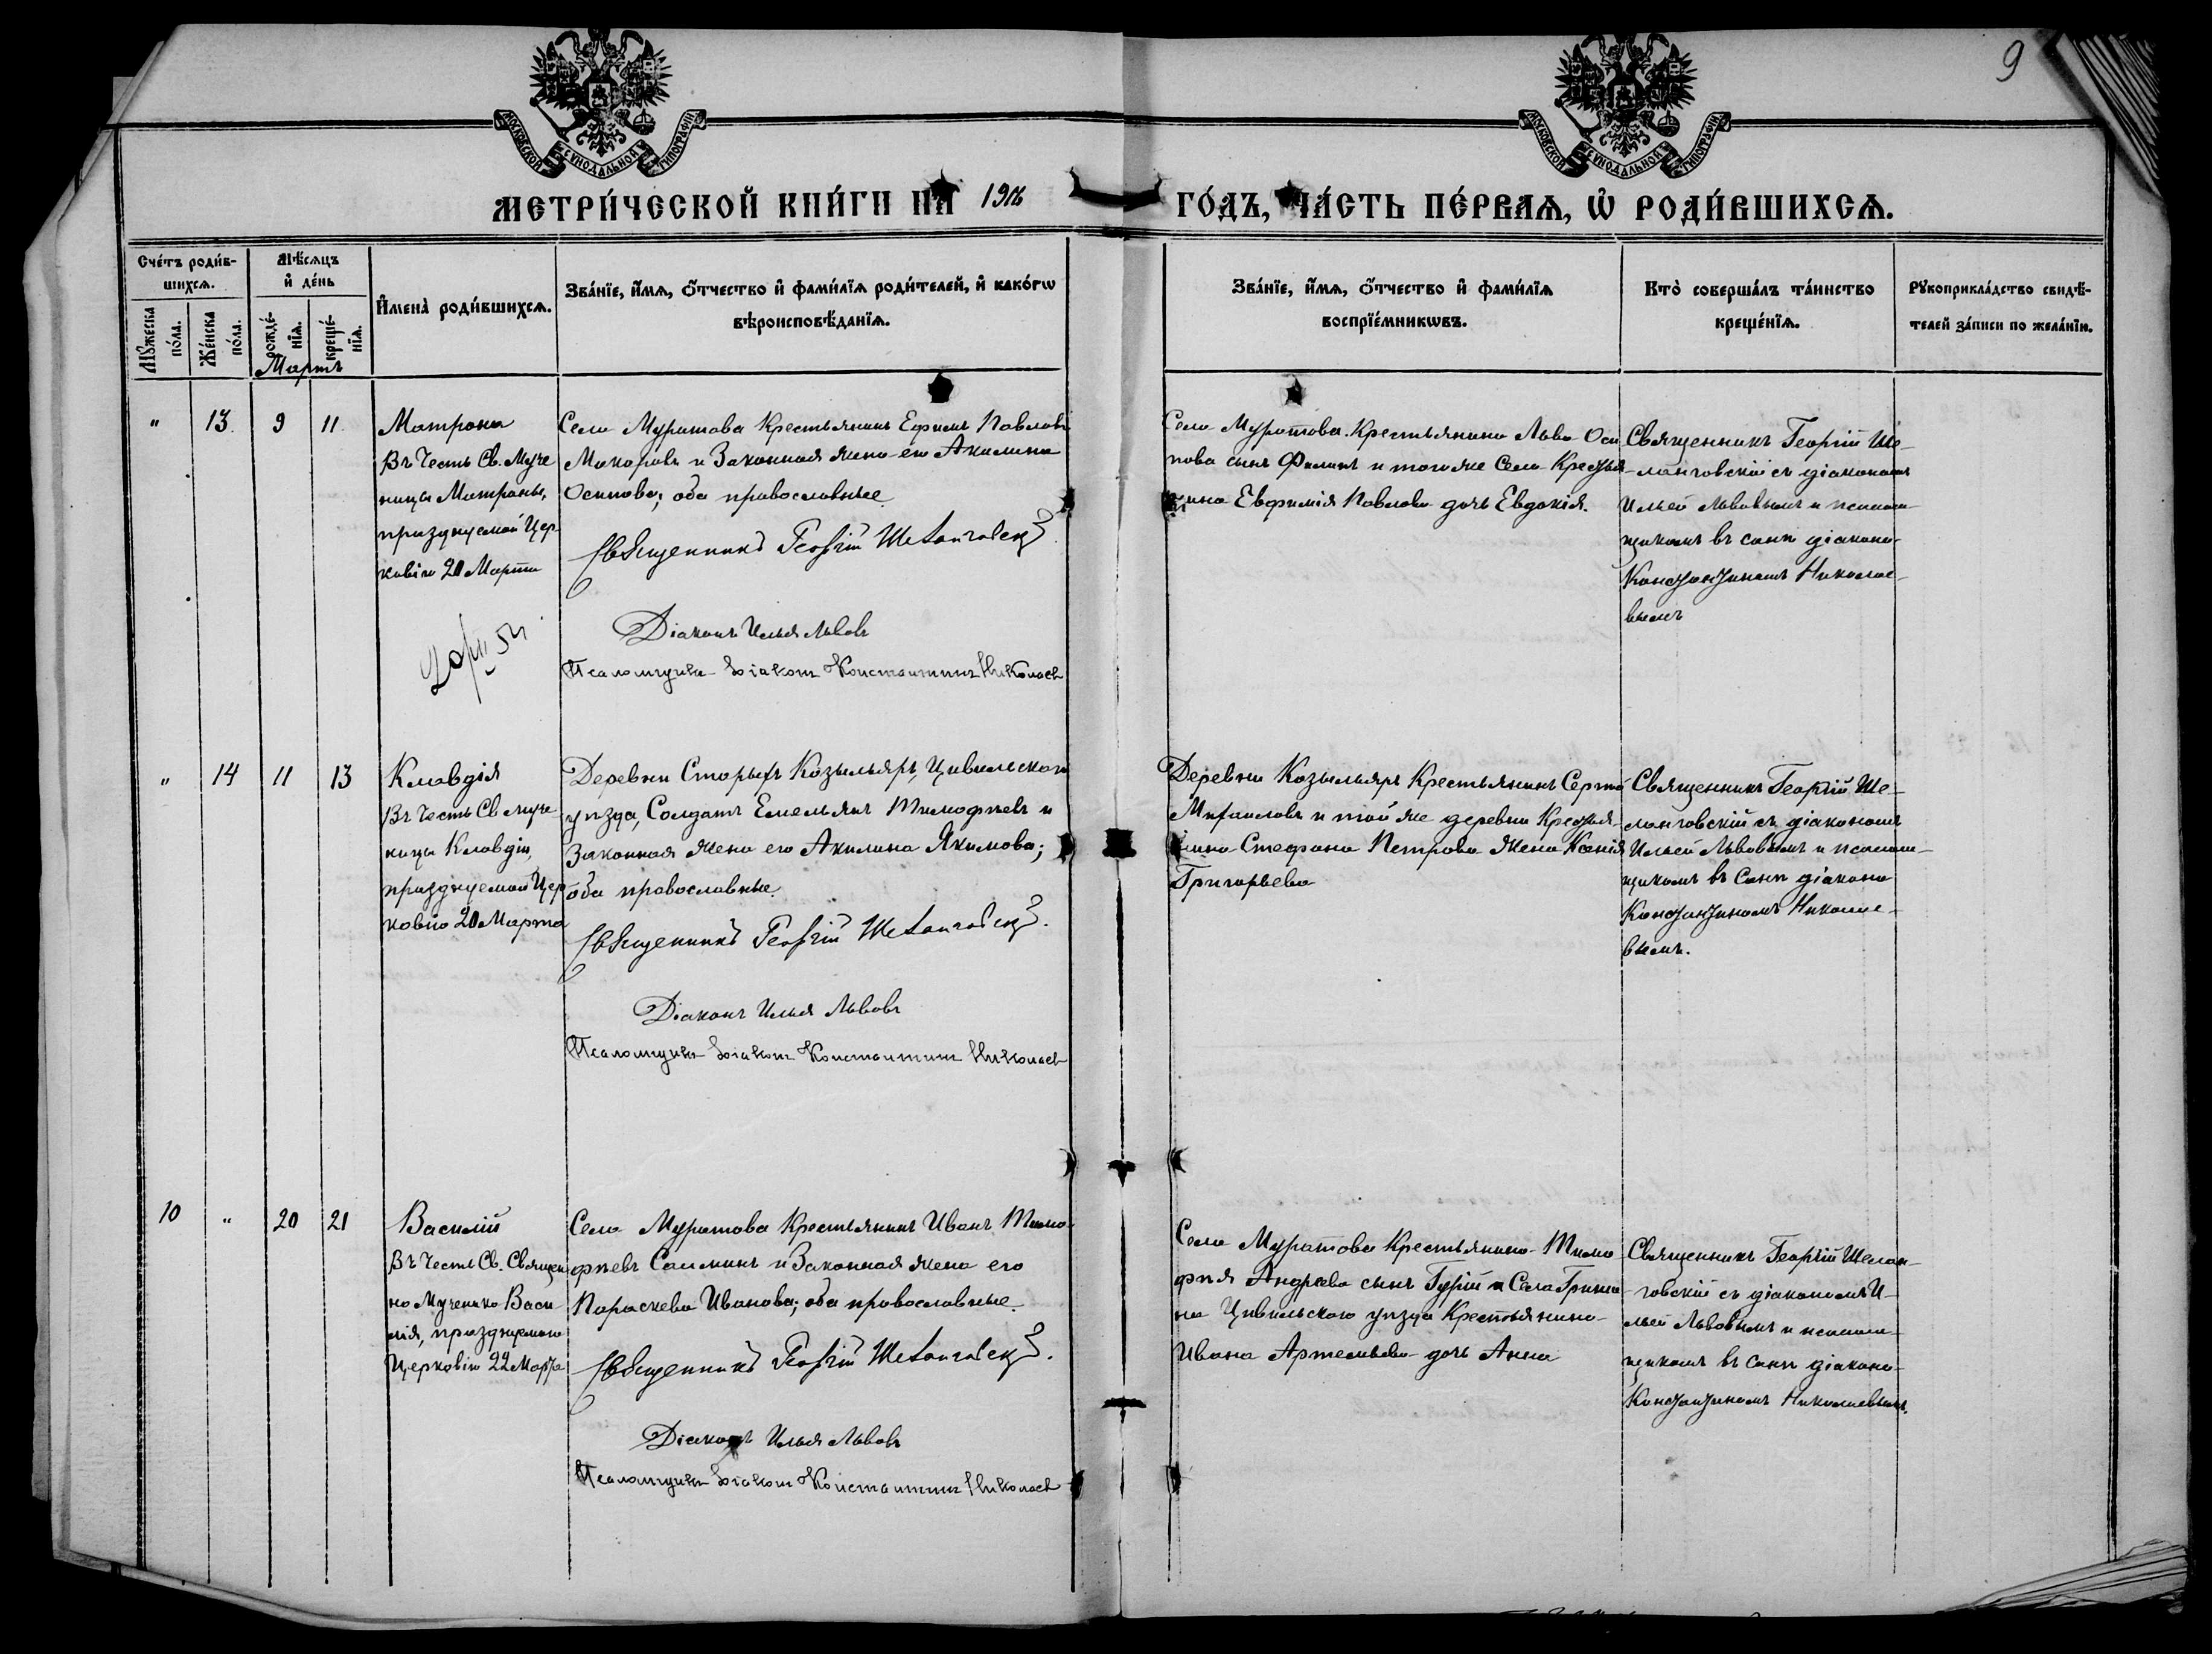 9
МОСКОВСКОЙ СѴНОДАЛЬНОЙ ТИПОГРАФІИ
МОСКОВСКОЙ СѴНОДАЛЬНОЙ ТИПОГРАФІИ
МЕТРИ́ЧЕСКОЙ КНИ́ГИ НА 1916
ГО́ДЪ, ЧА́СТЬ ПЕ́РВАѦ, Ѡ҆ РОДИ́ВШИХСѦ.
Сче́тъ роди́в-
шихсѧ.
Мꙋ́жеска по́ла.
Же́нска по́ла.
Мѣ́сѧцъ
и҆ де́нь
рожде́-
нїѧ.
креще́-
нїѧ.
И҆мена̀ роди́вшихсѧ.
Зва́нїе, и҆́мѧ, ѻ҆́тчество и҆ фами́лїѧ роди́телей, и҆ како́гѡ
вѣроисповѣ́данїѧ.
Зва́нїе, и҆́мѧ, ѻ҆́тчество и҆ фами́лїѧ
воспрїе́мникѡвъ.
Кто̀ соверша́лъ та́инство
креще́нїѧ.
Рꙋкоприкла́дство свидѣ́-
телей за́писи по жела́нїю.
Мартъ
" 13. 9 11.
Матрона
Въ Честь Св. Муче
ницы Матроны,
празднуемой Цер
ковію 20 Марта
Села Муратова Крестьянинъ Ефимъ Павловъ
Макаровъ и Законная жена его Акилина
Осипова; оба православные
Священникъ Георгій Шеланговскій
Діаконъ Илья Львовъ
Псаломщикъ діаконъ Константинъ Николаевъ
Села Муратова Крестьянина Льва Оси
пова сынъ Филипъ и того же Села Крестья
нина Евфимія Павлова дочь Евдокія.
Священникъ Георгій Ше-
ланговскій съ діакономъ
Ильей Львовымъ и псалом-
щикомъ въ санѣ діакона
Константиномъ Николае-
вымъ
" 14 11 13
Клавдія
Въ Честь Св Муче
ницы Клавдіи,
празднуемой Цер
ковію 20 Марта
Деревни Старыхъ Козыльяръ, Цивильскаго
уѣзда, Солдатъ Емельянъ Тимофѣевъ и
Законная жена его Акилина Якимова;
оба православные
Священникъ Георгій Шеланговскій.
Діаконъ Илья Львовъ
Псаломщикъ діаконъ Константинъ Николаевъ
Деревни Козыльяръ Крестьянинъ Сергій
Михаиловъ и той же деревни Крестья-
нина Стефана Петрова жена Ксенія
Григорьева
Священникъ Георгій Ше-
ланговскій съ діакономъ
Ильей Львовымъ и псалом-
щикомъ въ Санѣ діакона
Константиномъ Николае-
вымъ.
10 " 20 21
Василій
Въ Честь Св. Священ
но Мученика Васи
лія, празднуемаго
Церковію 22 Марта
Села Муратова Крестьянинъ Иванъ Тимо-
фѣевъ и Законная жена его
Параскева Иванова; оба православные.
Священникъ Георгій Шеланговскій.
Діаконъ Илья Львовъ
Псаломщикъ діаконъ Константинъ Николаевъ
Села Муратова Крестьянина Тимо
фѣя Андреева сынъ Гурій и Села
Цивильскаго уѣзда Крестьянина
Ивана Артемьева дочь Анна
Священникъ Георгій Шелан-
говскій съ діакономъ И-
льей Львовымъ и псалом-
щикомъ въ Санѣ діакона
Константиномъ Николаевымъ.